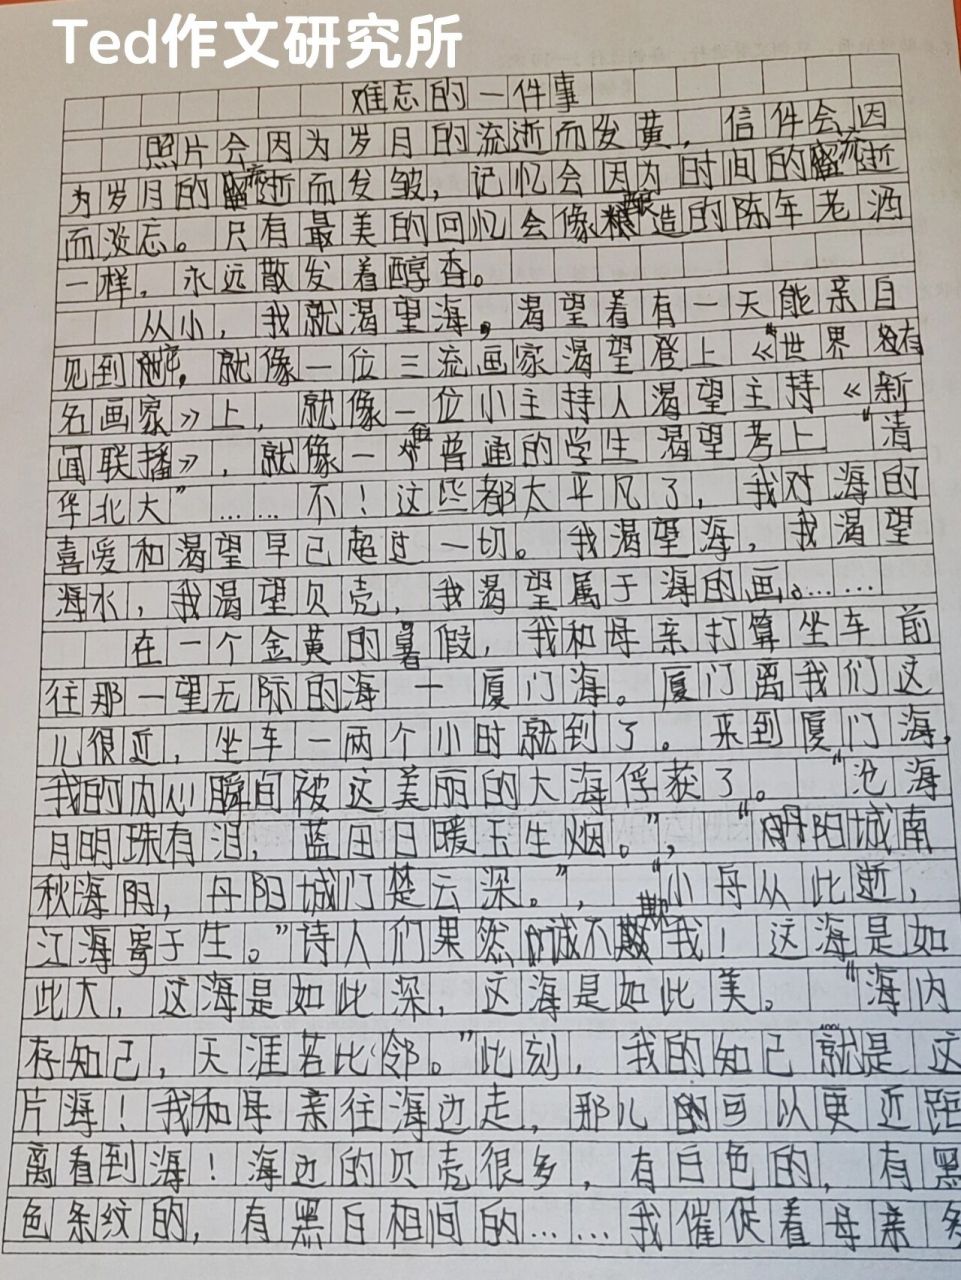 Ted作文研究所
难忘的一件事
照片会因为岁月的流逝而发黄，信件会因
为岁月的流逝而发皱，记忆会因为时间的流逝
而淡忘。只有最美的回忆会像酿造的陈年老酒
一样，永远散发着醇香。
从小，我就渴望海，渴望着有一天能亲自
见到它，就像一位三流画家渴望登上《世界有
名画家》上，就像一位小主持人渴望主持《新
闻联播》，就像一位普通的学生渴望考上“清
华北大”……不！这些都太平凡了，我对海的
喜爱和渴望早已超过一切。我渴望海，我渴望
海水，我渴望贝壳，我渴望属于海的画。……
在一个金黄的暑假，我和母亲打算坐车前
往那一望无际的海一厦门海。厦门离我们这
儿很近，坐车一两个小时就到了。来到厦门海，
我的内心瞬间被这美丽的大海俘获了。“沧海
月明珠有泪，蓝田日暖玉生烟。”，“丹阳城南
秋海阴，丹阳城门楚云深。”，“小舟从此逝，
江海寄于生。”诗人们果然诚不欺我！这海是如
此大，这海是如此深，这海是如此美。“海内
存知己，天涯若比邻。”此刻，我的知己就是这
片海！我和母亲往海边走，那儿的可以更近距
离看到海！海边的贝壳很多，有白色的，有黑
色条纹的，有黑白相间的……我催促着母亲多